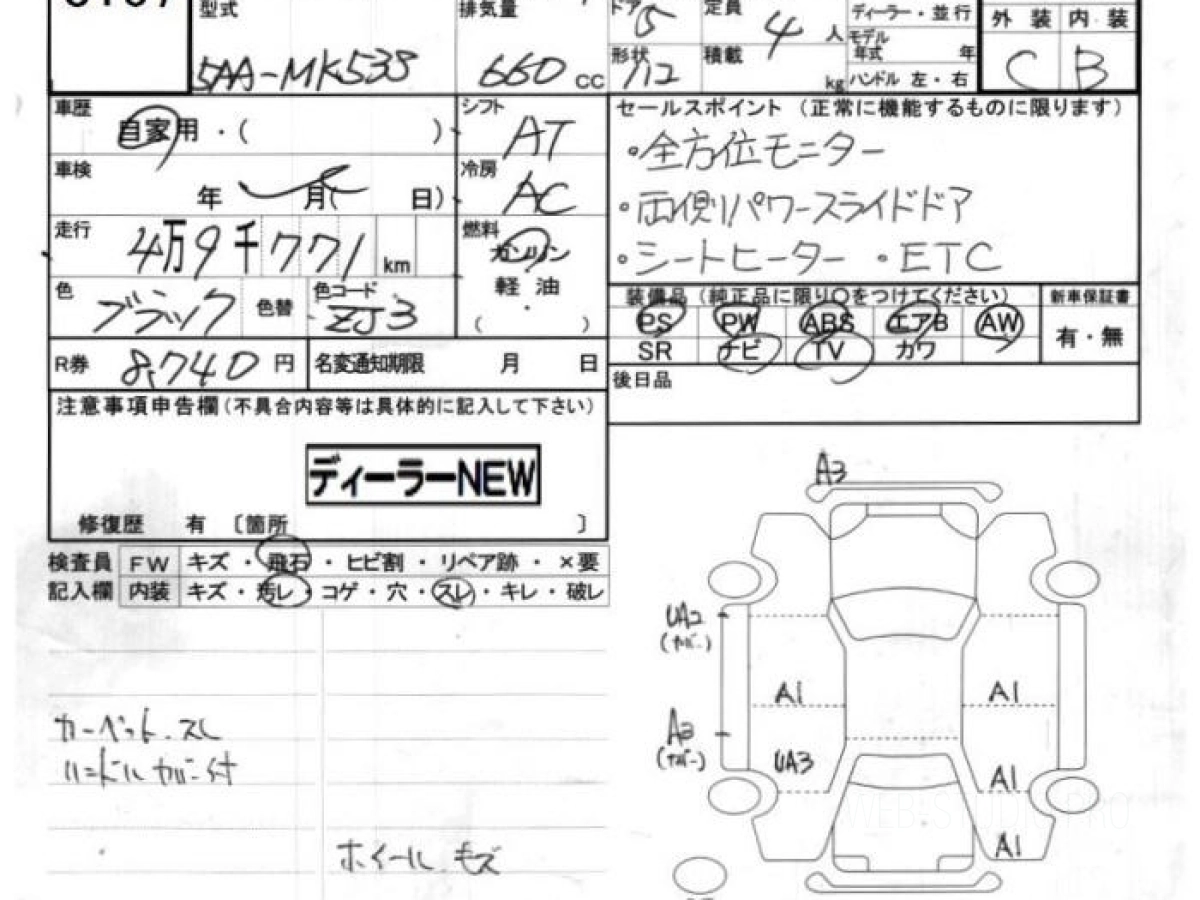 型式
排気量
ドア 5
定員 4人
ディーラー・並行
外装 内装
5AA-MK53S
660 CC
形状 /12
積載 kg
モデル年式 年
ハンドル 左・右
C B
車歴 自家用・( )
シフト AT
セールスポイント (正常に機能するものに限ります)
・全方位モニター
車検 年 月( 日)
冷房 AC
・両側パワースライドドア
走行 4万9千771 km
燃料 ガソリン
・シートヒーター ・ETC
軽油
・
( )
色 ブラック 色替 色コード ZJ3
装備品 (純正品に限り○をつけてください) 新車保証書
PS PW ABS エアB AW 有・無
SR ナビ TV カワ
R券 8,740円 名変通知期限 月 日
後日品
注意事項申告欄(不具合内容等は具体的に記入して下さい)
ディーラーNEW
修復歴 有 〔箇所 〕
検査員 FW キズ・飛石・ヒビ割・リペア跡・×要
記入欄 内装 キズ・汚レ・コゲ・穴・スレ・キレ・破レ
カーペット.スレ
ハンドルカバー付
ホイール.キズ
A3
UA2
(カバー)
A1 A1
A2
(カバー)
UA3 A1
A1
WEB-STUDIO.PRO